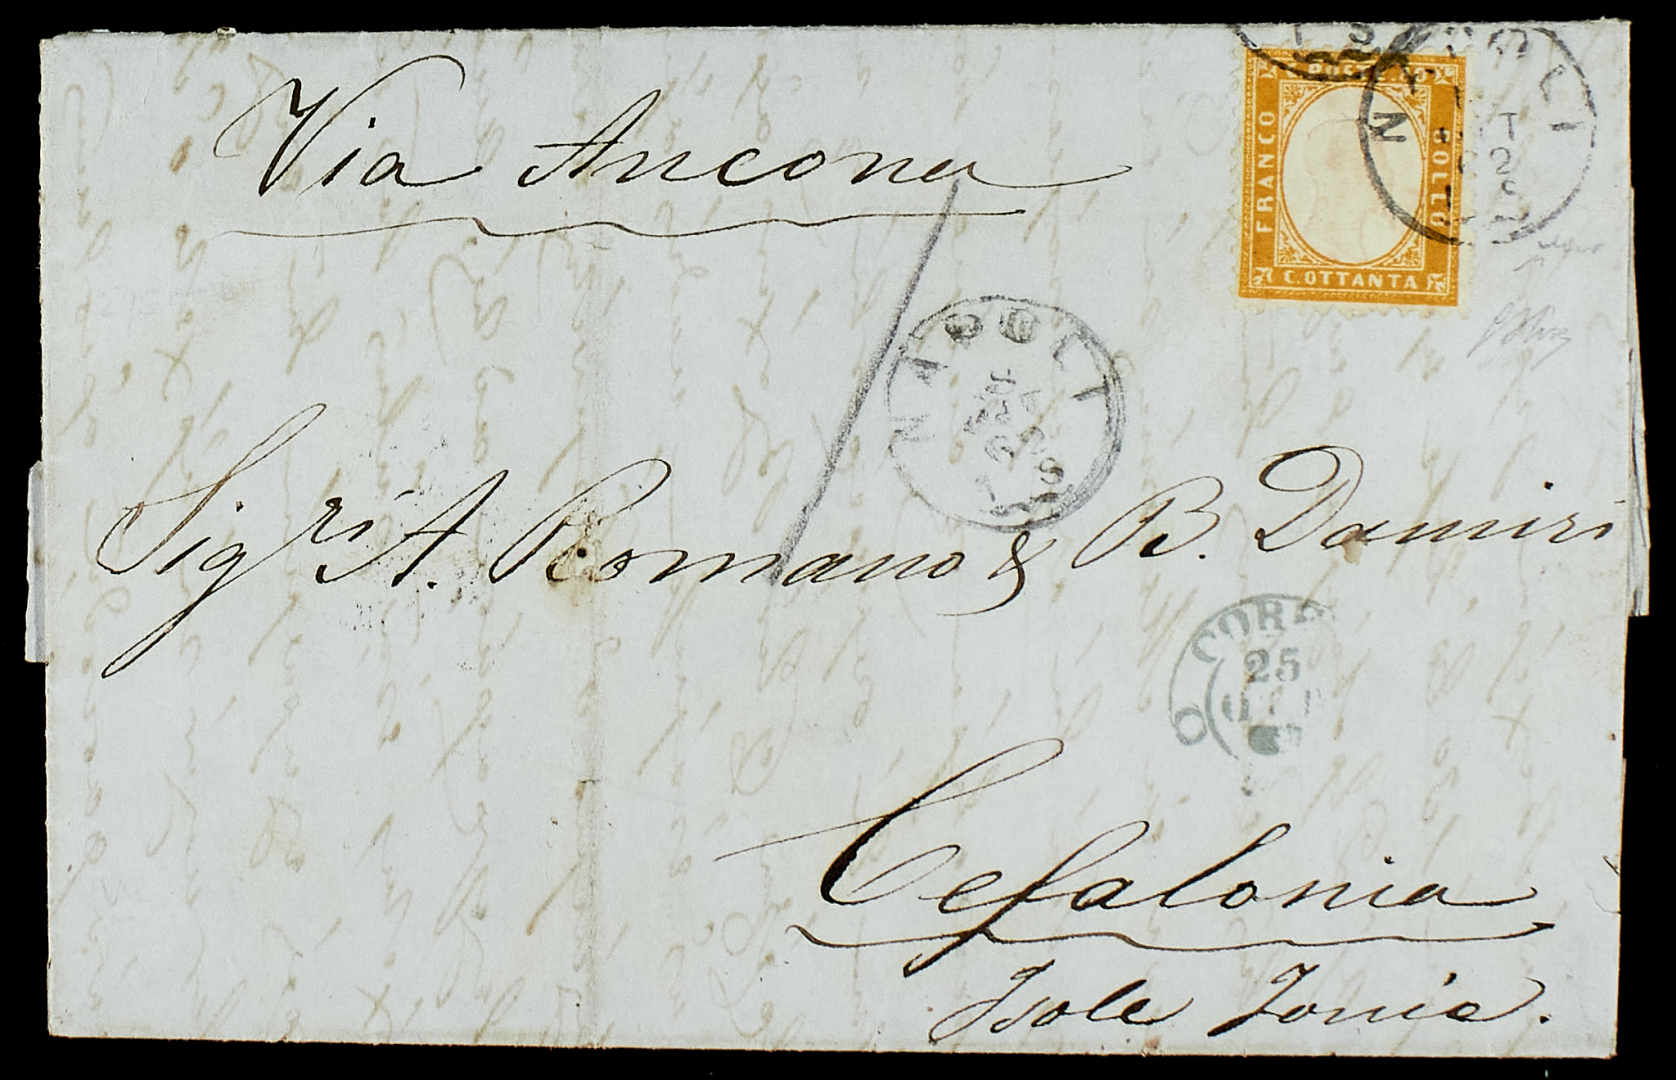 Via Ancona
FRANCO
BOLLO
C. OTTANTA
NAPOLI
NAPOLI
Sigri A. Romano & B. Damiri
CORF
25
Cefalonia
Isole Jonie.